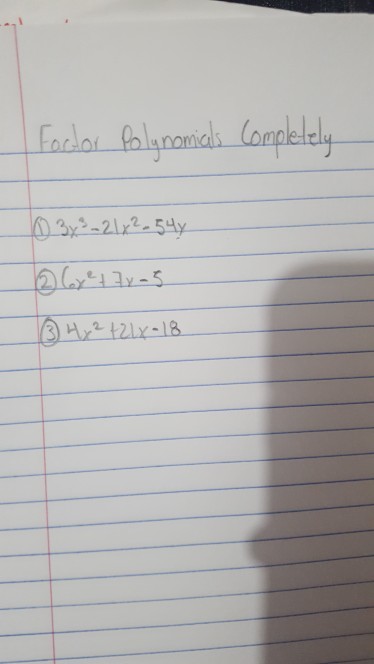 Factor Polynomials Completely
① 3x³-21x²-54x
② 6x²+7x-5
③ 4x²+21x-18